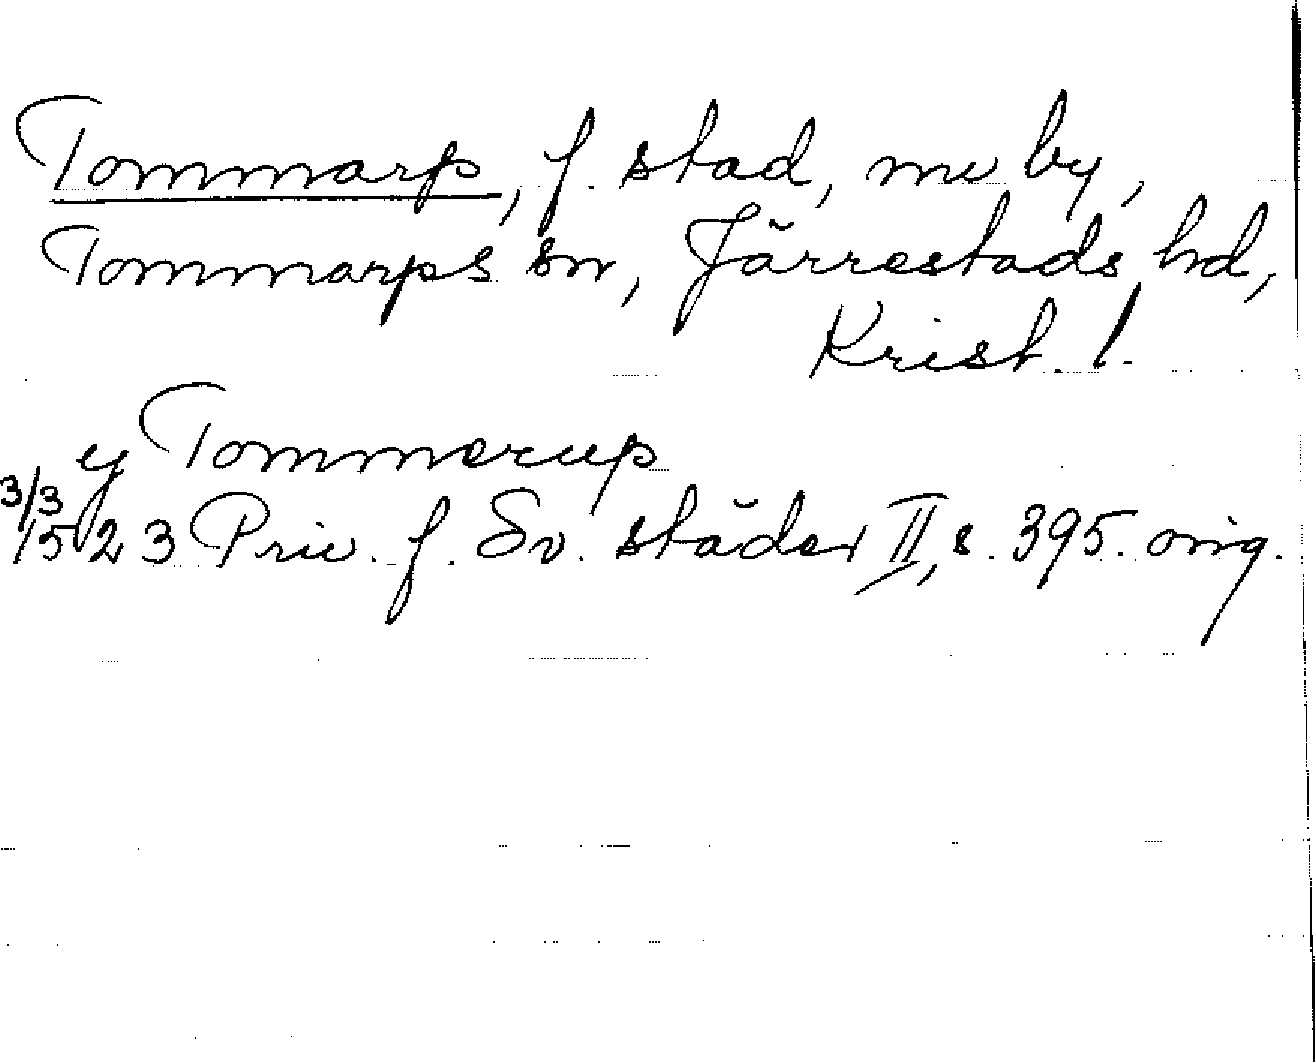 Tommarp, f. stad, nu by,
Tommarps sn, Järrestads hd,
Krist. l.
y Tommerup
3/3 1523 Priv. f. Sv. städer II, s. 395. orig.